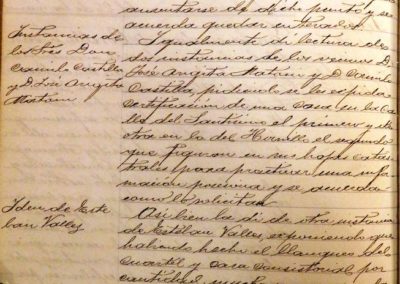 ausentarse de dicho punto y se
acuerda quedar enterados.
Instancias de
los Srs Don
Camilo Castilla
y D. José Angita
Matien
Igualmente dí lectura de
dos instancias de los vecinos D.
José Angita Matien y D. Camilo
Castilla, pidiendo se les expida
certificación de una casa en la Ca-
lle del Santísimo el primero y de
otra en la del Hornillo el segundo
que figuran en sus hojas catas-
trales para practicar una infor-
mación posesoria y se acuerda
como lo solicitan.
Idem de Este
ban Valles
Asi bien la dí de otra instancia
de Estéban Valles, exponiendo que
habiendo hecho el blanqueo del
cuartel y casa consistorial por
cantidad mucho